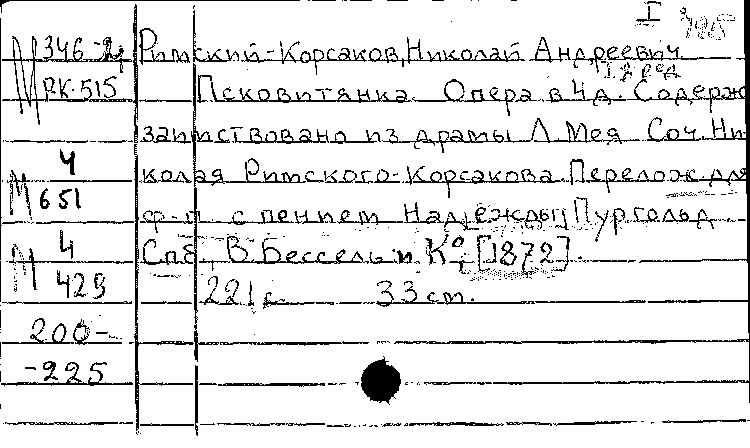 I
М 346-2 Римский-Корсаков, Николай Андреевич.
РК-515 Псковитянка. Опера в 4 д. Содерж
1я ред
заимствовано из драмы Л. Мея. Соч. Ни
М 4/651 колая Римского-Корсакова. Перелож. для
ф-п. с пением Над[ежды] Пургольд.
М 4/429 Спб., В. Бессель и Ко, [1872].
221 с. 33 см.
200-
-225